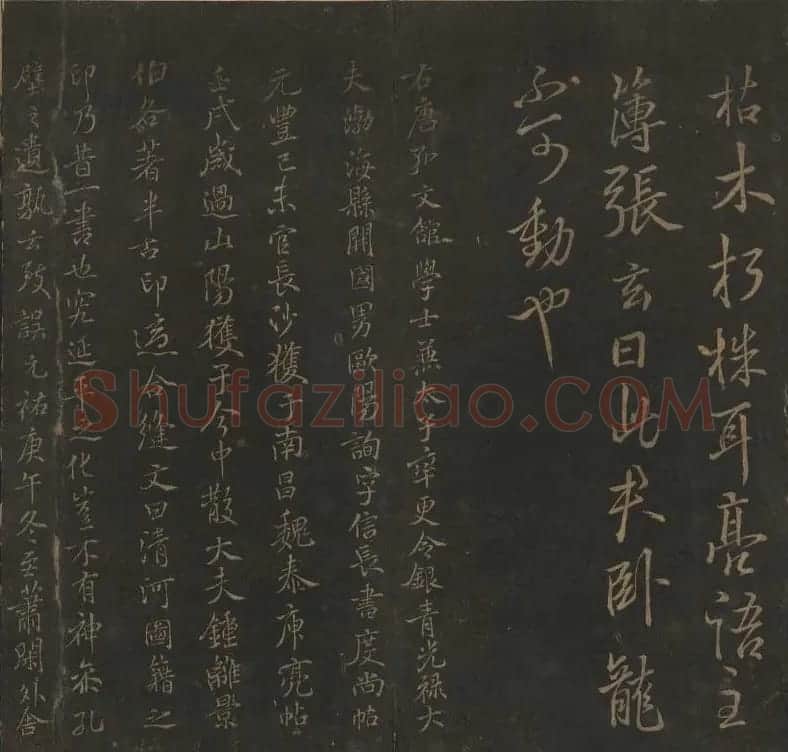 枯木朽株耳亮語主
簿張玄曰此天卧龍
不可動也
右唐弘文館學士兼太子率更令銀青光禄大
夫渤海縣開國男歐陽詢字信長書度尚帖
元豐己未官長沙獲于南昌魏泰庾亮帖
壬戌歲過山陽獲于今中散大夫鍾離景
伯各著半古印適合縫文曰清河圖籍之
印乃昔一書也延平之化豈不有神㳟孔
壁之遺孰云殁誤元祐庚午冬至蕭閑外舍
Shufaziliao.com